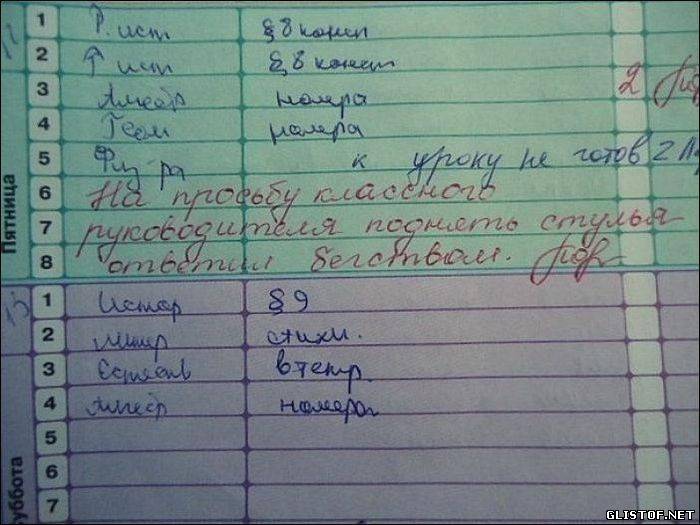 11
1 Р. ист § 8 консп
2 Р ист § 8 консп
3 Алгебр номера 2
4 Геом номера
5 Физ-ра к уроку не готов 2
6 На просьбу классного
7 руководителя поднять стулья
8 ответил бегством.
Пятница
1 Истор § 9
2 Литер стихи.
3 Естеств в тетр.
4 Алгебр номера
5
6
7
уббота
GLISTOF.NET